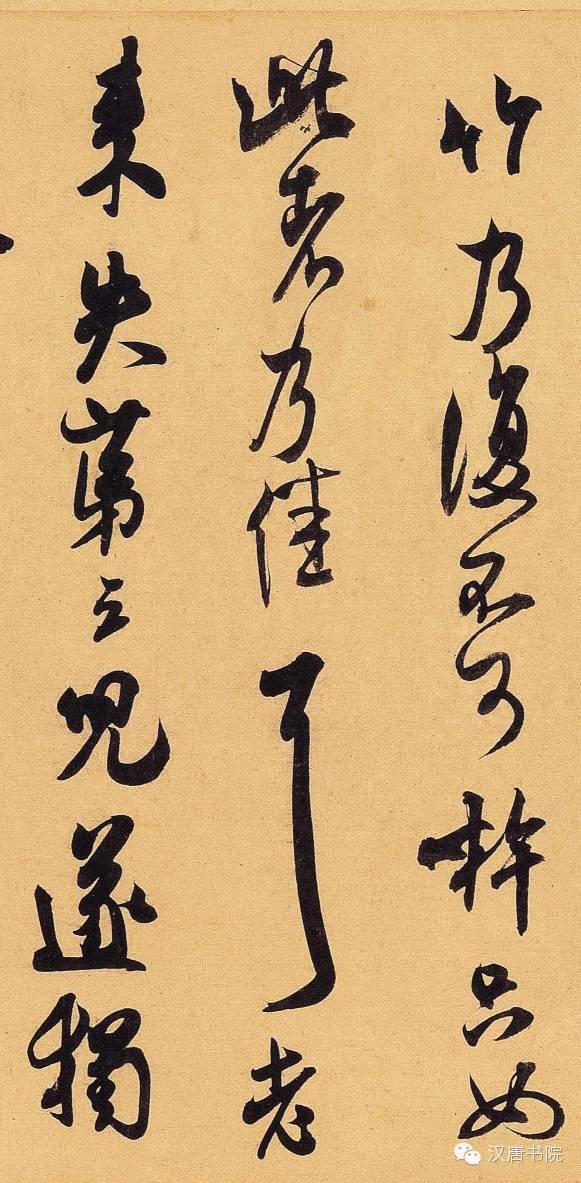 竹乃復不可幹只如
此者乃佳耳老
來失第三兒遂獨
汉唐书院